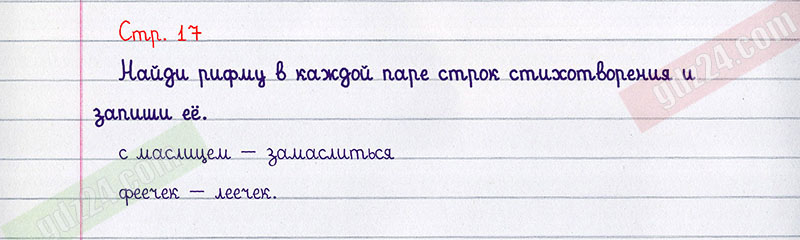 Стр. 17
Найди рифму в каждой паре строк стихотворения и
запиши её.
с маслицем – замаслиться
феечек – леечек.
gdz24.com
gdz24.com